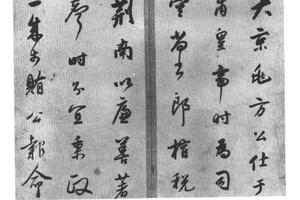 大京兆方公仕于
肅皇帝时為司
空尚书郎榷税
荆南以廉善著
时分宜秉政
一朱賄公報命